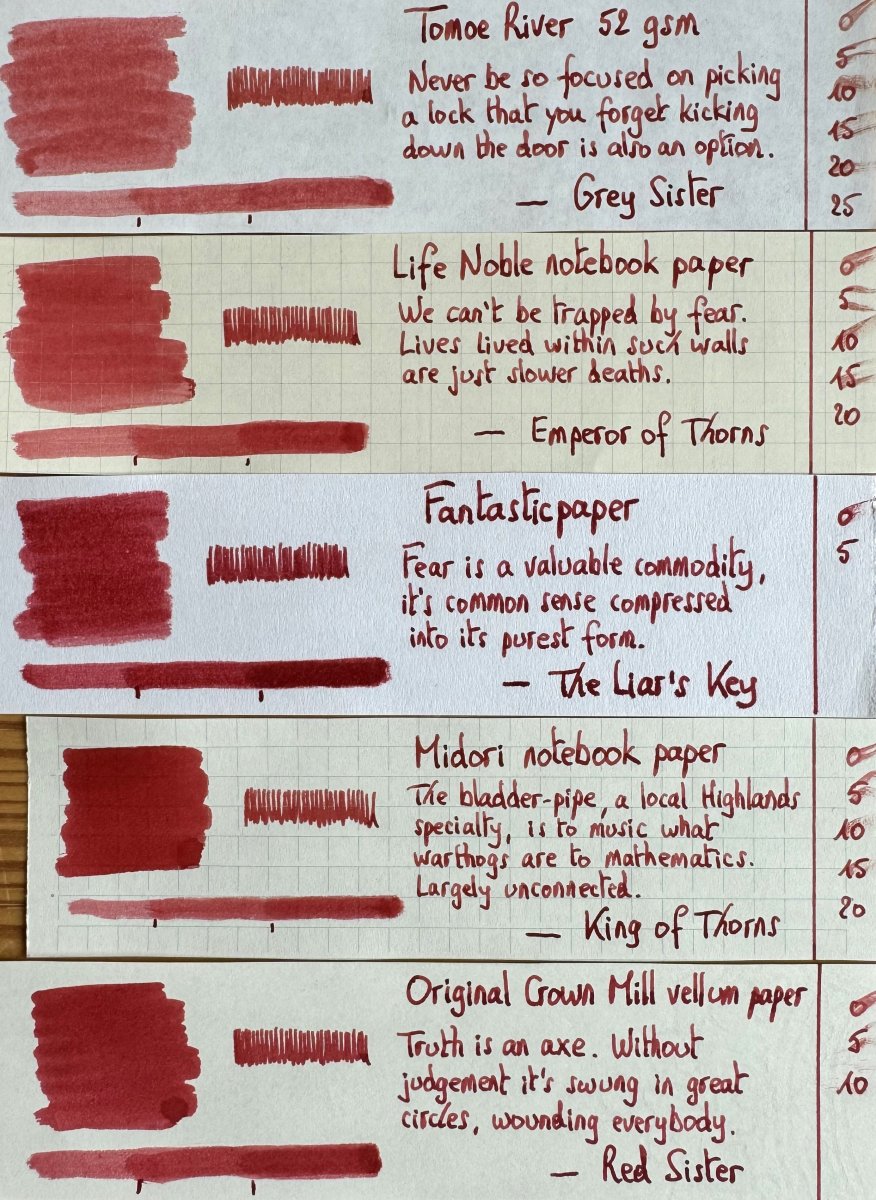 Tomoe River 52 gsm
Never be so focused on picking
a lock that you forget kicking
down the door is also an option.
— Grey Sister
0
5
10
15
20
25
Life Noble notebook paper
We can't be trapped by fear.
Lives lived within such walls
are just slower deaths.
— Emperor of Thorns
0
5
10
15
20
Fantasticpaper
Fear is a valuable commodity,
it's common sense compressed
into its purest form.
— The Liar's Key
0
5
Midori notebook paper
The bladder-pipe, a local Highlands
specialty, is to music what
warthogs are to mathematics.
Largely unconnected.
— King of Thorns
0
5
10
15
20
Original Crown Mill vellum paper
Truth is an axe. Without
judgement it's swung in great
circles, wounding everybody.
— Red Sister
0
5
10